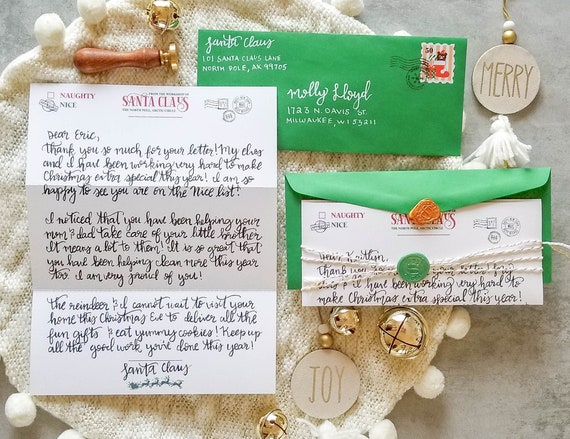 Santa Claus
101 SANTA CLAUS LANE
NORTH POLE, AK 99705
50
Molly Lloyd
1723 N. DAVIS ST.
MILWAUKEE, WI 53211
MERRY
NAUGHTY
NICE
FROM THE WORKSHOP OF
SANTA CLAUS
THE NORTH POLE, ARCTIC CIRCLE
Dear Eric,
Thank you so much for your letter! My elves
and I have been working very hard to make
Christmas extra special this year! I am so
happy to see you are on the Nice list!
I noticed that you have been helping your
mom & dad take care of your little brother.
It means a lot to them! It is so great that
you have been helping clean more this year
too. I am very proud of you!
The reindeer & I cannot wait to visit your
home this Christmas Eve to deliver all the
fun gifts & eat yummy cookies! Keep up
all the good work you've done this year!
Santa Claus
NAUGHTY
NICE
SANTA CLAUS
THE NORTH POLE, ARCTIC CIRCLE
Dear Kaitlyn,
Thank you
& I have been working very hard to
make Christmas extra special this year!
JOY